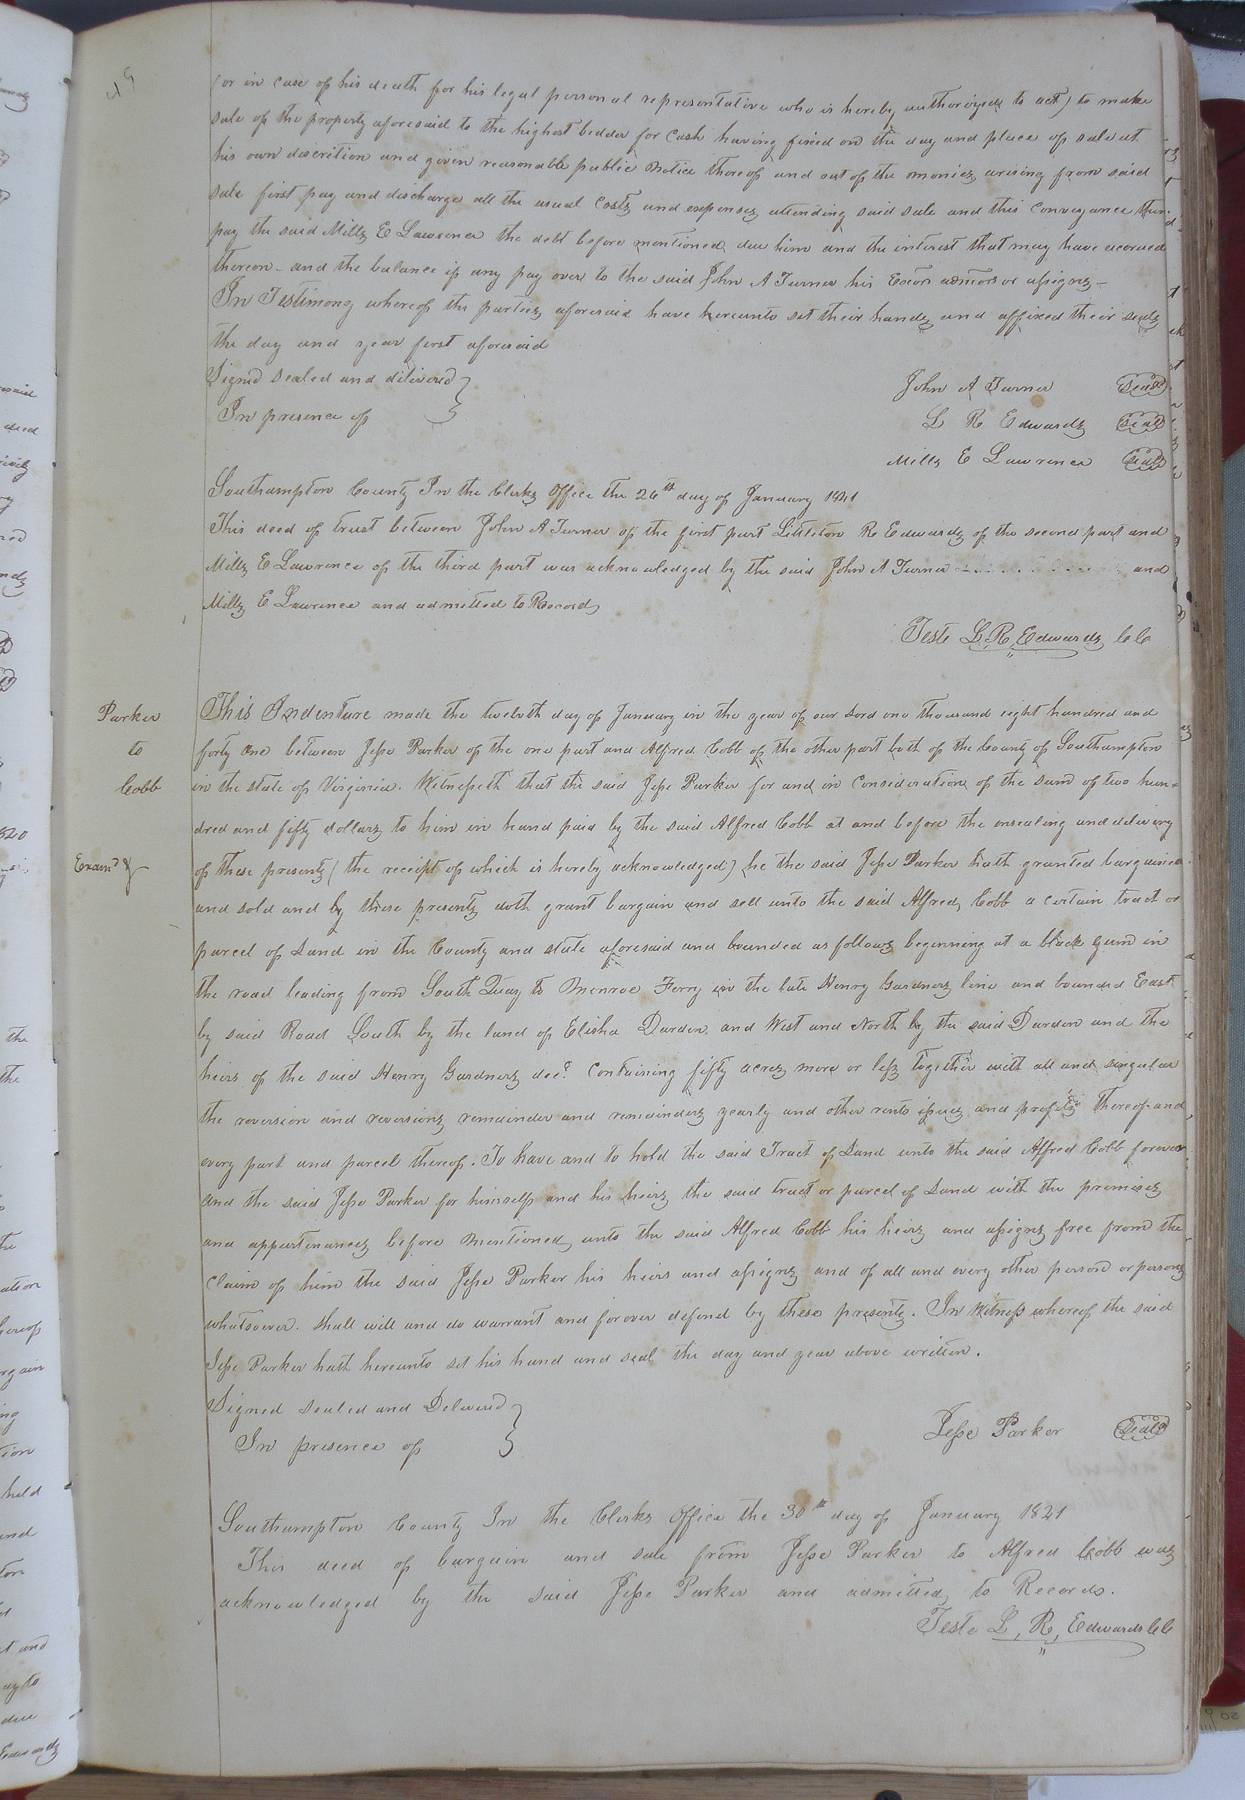 (or in case of his death for his legal personal representative who is hereby authorized to act) to make
sale of the property aforesaid to the highest bedder for cash having fixed on the day and place of sale at
his own discretion and given reasonable public notice thereof and out of the monies arising from said
sale first pay and discharge all the usual costs and expenses attending said sale and this conveyance then
pay the said Mills E Lawrence the debt before mentioned due him and the interest that may have accrued
thereon - and the balance if any pay over to the said John A Turner his Exors admors or assigns -
In Testimony whereof the parties aforesaid have hereunto set their hands and affixed their seals
the day and year first aforesaid
Signd sealed and delivered }
In presence of
John A Turner Seal
L R Edwards Seal
Mills E Lawrence Seal
Southampton County In the Clerks Office the 26th day of January 1841
This deed of trust between John A Turner of the first part Littleton R Edwards of the second part and
Mills E Lawrence of the third part was acknowledged by the said John A Turner and
Mills E Lawrence and admitted to Record
Teste L. R, Edwards CC
Parker
to
Cobb
Examd
This Indenture made the twelvth day of January in the year of our Lord one thousand eight hundred and
forty one between Jesse Parker of the one part and Alfred Cobb of the other part both of the County of Southampton
in the state of Virginia. Witnesseth that the said Jesse Parker for and in consideration of the sum of two hun-
dred and fifty dollars to him in hand paid by the said Alfred Cobb at and before the ensealing and delivery
of these presents (the receipt of which is hereby acknowledged) he the said Jesse Parker hath granted bargained
and sold and by these presents doth grant bargain and sell unto the said Alfred Cobb a certain tract or
parcel of Land in the County and state aforesaid and bounded as follows beginning at a black gum in
the road leading from South Quay to Monroe Ferry in the late Henry Gardners line and bounded East
by said Road South by the land of Elisha Darden and West and North by the said Darden and the
heirs of the said Henry Gardners decd. containing fifty acres more or less together with all and singular
the reversion and reversions remainder and remainders yearly and other rents issues and profits thereof and
every part and parcel thereof. To have and to hold the said Tract of Land unto the said Alfred Cobb forever
And the said Jesse Parker for himself and his heirs the said tract or parcel of Land with the premises
and appurtinances before mentioned unto the said Alfred Cobb his heirs and assigns free from the
claim of him the said Jesse Parker his heirs and assigns and of all and every other person or persons
whatsoever. shall will and do warrant and forever defend by these presents. In Witness whereof the said
Jesse Parker hath hereunto set his hand and seal the day and year above written.
Signed sealed and Delivered }
In presence of
Jesse Parker Seal
Southampton County In the Clerks Office the 30th day of January 1841
This deed of bargain and sale from Jesse Parker to Alfred Cobb was
acknowledged by the said Jesse Parker and admitted to Records.
Teste L, R, Edwards CC